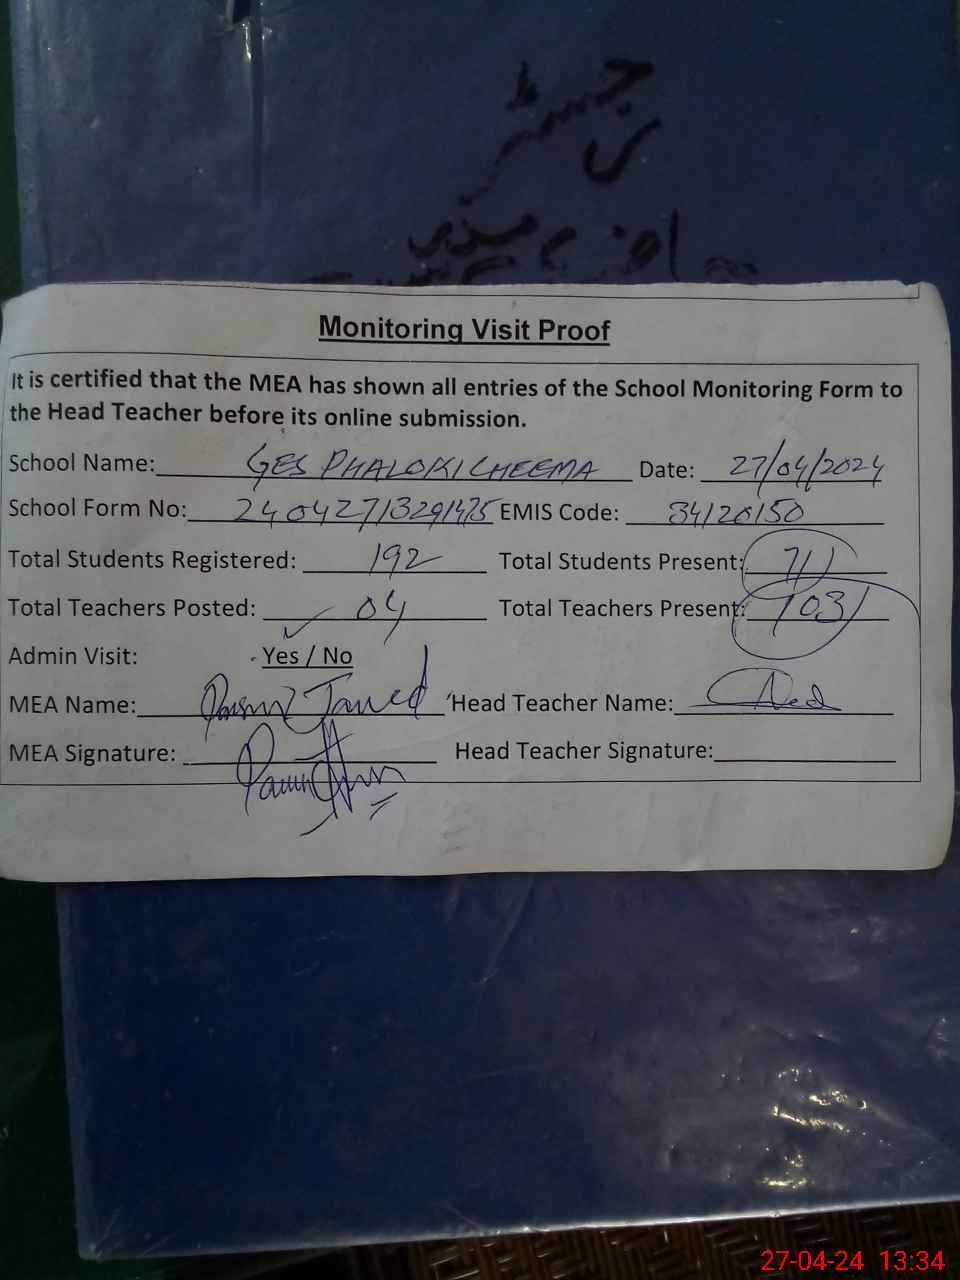 رجسٹر
Monitoring Visit Proof
It is certified that the MEA has shown all entries of the School Monitoring Form to
the Head Teacher before its online submission.
School Name: GES PHALOKI CHEEMA Date: 27/04/2024
School Form No: 24042713291475 EMIS Code: 34120150
Total Students Registered: 192 Total Students Present: 71
Total Teachers Posted: 04 Total Teachers Present: 03
Admin Visit: Yes / No
MEA Name: Javed Head Teacher Name:
MEA Signature: Head Teacher Signature:
27-04-24 13:34